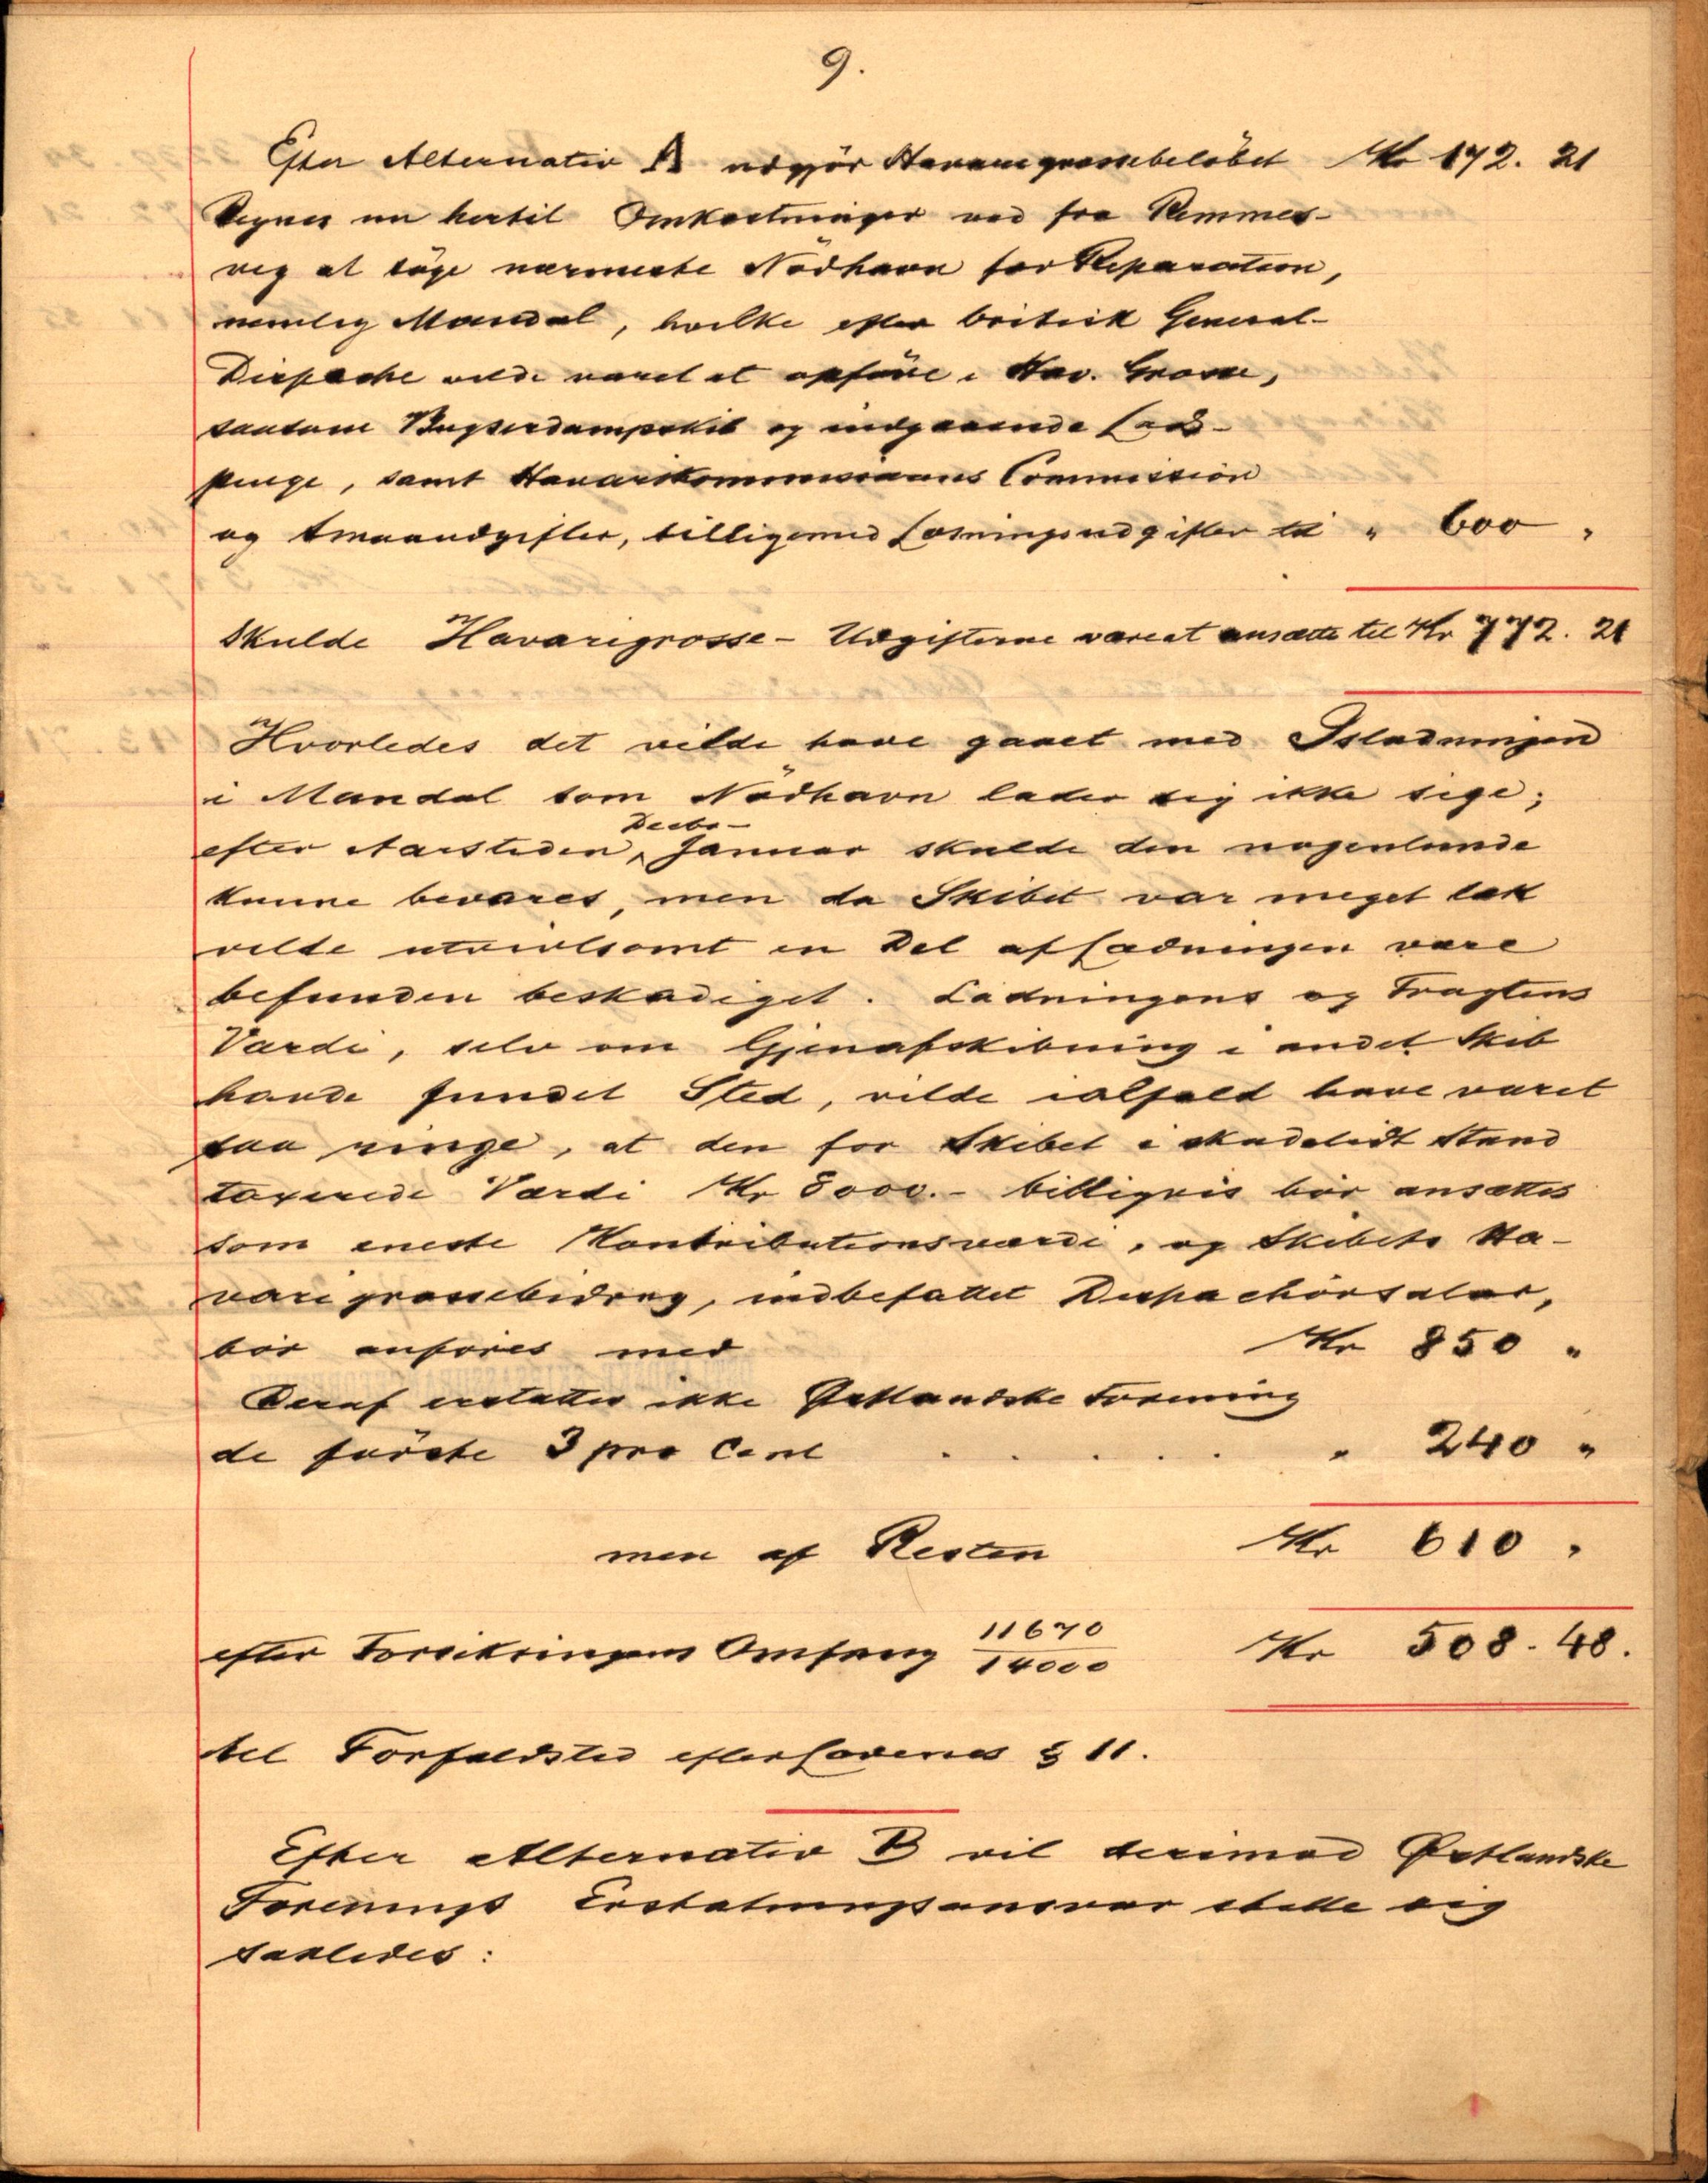 9.
Efter Alternativ A udgjør Havarigrossebeløbet Kr 172. 21
Regnes nu hertil Omkostninger ved fra Rommes-
veg at søge nærmeste Nødhavn for Reparation,
nemlig Mandal, hvilke efter britisk General-
Dispache vilde været at opføre i Hav. Grosse,
saasom Bugserdampskib og indgaaende Lods-
penge, samt Havarikommissionairs Commission
og Smaaudgifter, tilligemed Losningsudgifter til " 600 "
Skulde Havarigrosse- Udgifterne væreat ansætte til Kr 772. 21
Hvorledes det vilde have gaaet med Isladningen
i Mandal som Nødhavn lader sig ikke sige;
Decbr-
efter Aarstiden, Januar skulde den nogenlunde
kunne bevares, men da Skibet var meget læk
vilde utvivlsomt en Del af Ladningen være
befunden beskadiget. Ladningens og Fragtens
Værdi, selv om Gjenafskibning i andet Skib
havde fundet Sted, vilde ialfald have været
saa ringe, at den for Skibet i skadelidt Stand
taxerede Værdi Kr 8000.- billigvis bør ansættes
som eneste Kontributionsværdi, og Skibets Ha-
varigrossebidrag, indbefattet Dispachørsalær,
bør anføres med Kr 850 "
Deraf erstatter ikke Østlandske Forening
de første 3 pro Cent . . . . . " 240 "
men af Resten Kr 610 "
efter Forsikringens Omfang 11670/14000 Kr 508. 48.
til Forfaldstid efter Lovenes § 11.
Efter Alternativ B vil derimod Østlandske
Forenings Erstatningsansvar stille sig
saaledes: